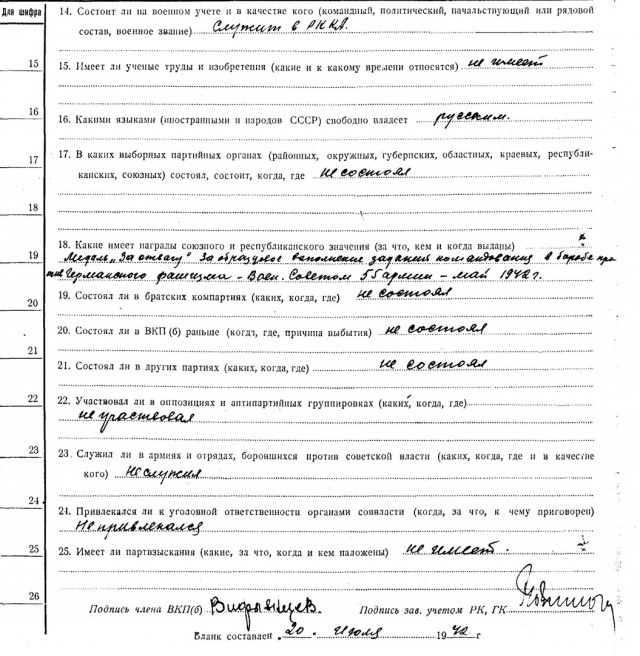 Для шифра
14. Состоит ли на военном учете и в качестве кого (командный, политический, начальствующий или рядовой
состав, военное звание) Служит в РККА.
15
15. Имеет ли ученые труды и изобретения (какие и к какому времени относятся) не имеет
16
16. Какими языками (иностранными и народов СССР) свободно владеет русским.
17
17. В каких выборных партийных органах (районных, окружных, губернских, областных, краевых, республи-
канских, союзных) состоял, состоит, когда, где не состоял
18
18. Какие имеет награды союзного и республиканского значения (за что, кем и когда выданы)
19
Медаль „За отвагу" За образцовое выполнение заданий командования в борьбе про
тив Германского фашизма – Воен. Советом 55 армии – май 1942 г.
20
19. Состоял ли в братских компартиях (каких, когда, где) не состоял
20. Состоял ли в ВКП(б) раньше (когда, где, причина выбытия) не состоял
21
21. Состоял ли в других партиях (каких, когда, где) не состоял
22
22. Участвовал ли в оппозициях и антипартийных группировках (каких, когда, где)
не участвовал
23
23. Служил ли в армиях и отрядах, боровшихся против советской власти (каких, когда, где и в качестве
кого) Не служил
24
24. Привлекался ли к уголовной ответственности органами соввласти (когда, за что, к чему приговорен)
Не привлекался
25
25. Имеет ли партвзыскания (какие, за что, когда и кем наложены) не имеет.
26
Подпись члена ВКП(б) Подпись зав. учетом РК, ГК
Бланк составлен 20. Июля 1942 г